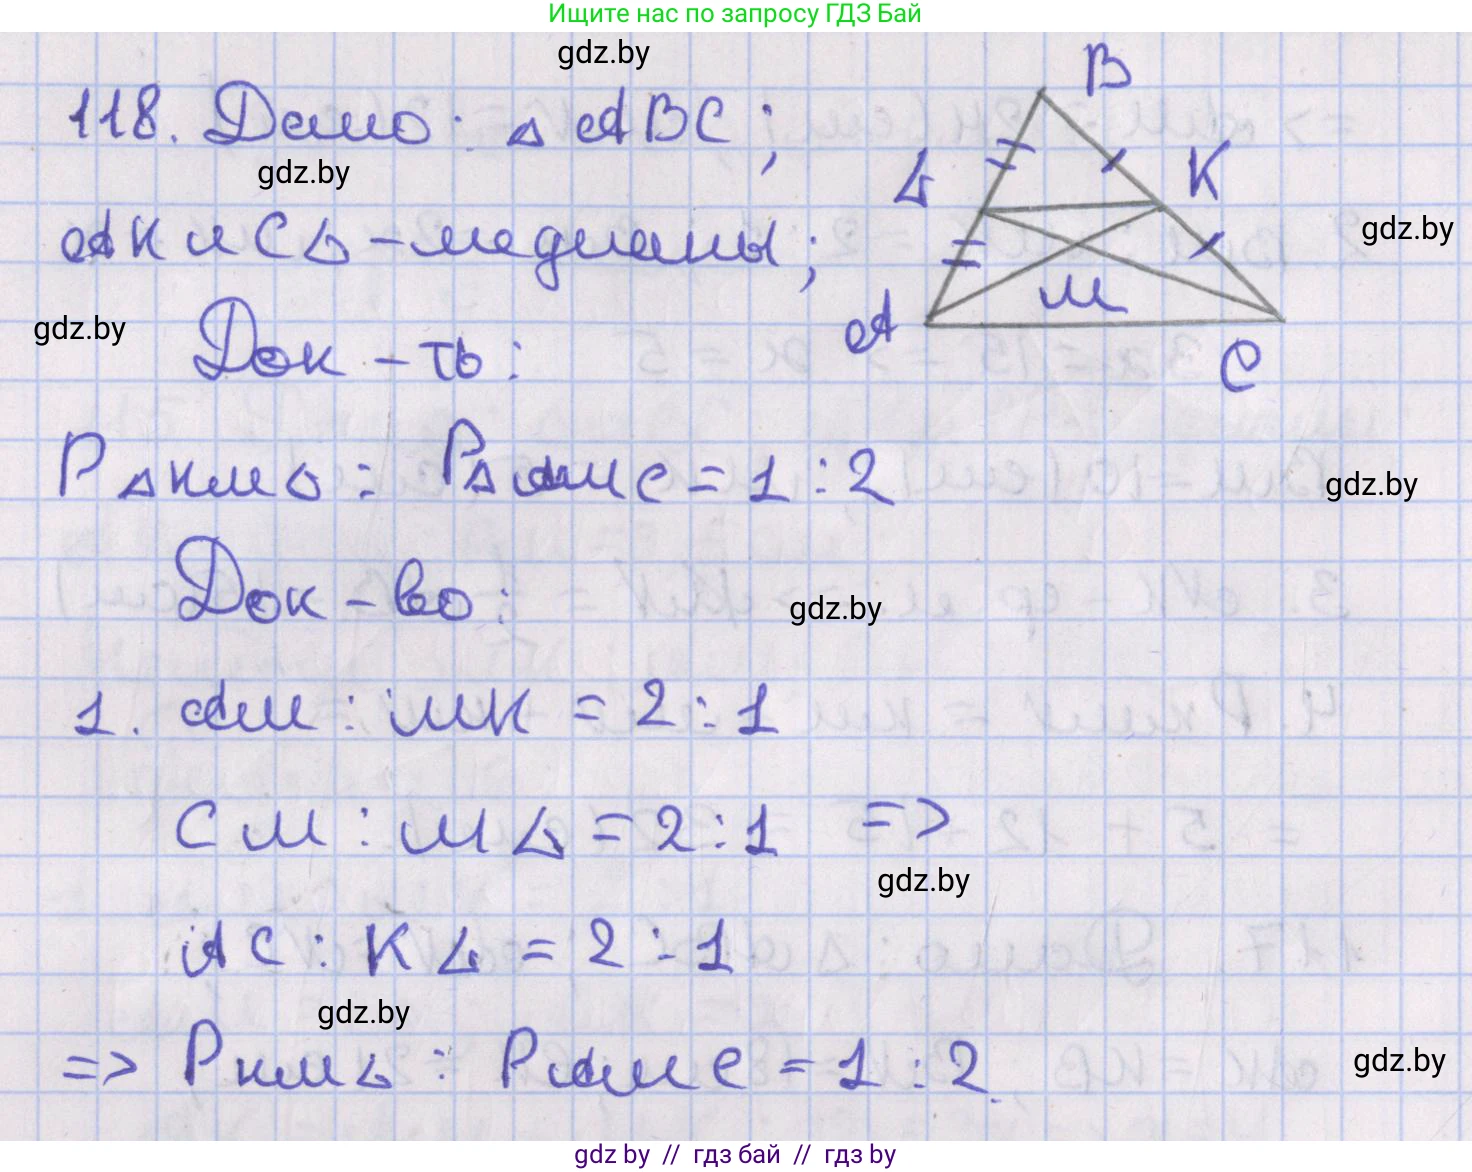 Ищите нас по запросу ГДЗ Бай
gdz.by
118. Дано: △ ABC;
gdz.by
B
L
K
gdz.by
AK и CL - медианы;
gdz.by
M
A
C
Док - ть:
P△KML : P△AMC = 1 : 2
gdz.by
Док - во:
gdz.by
1. AM : MK = 2 : 1
CM : ML = 2 : 1 =>
gdz.by
AC : KL = 2 : 1
gdz.by
=> PKML : PAMC = 1 : 2.
gdz.by
gdz by // гдз бай // гдз by